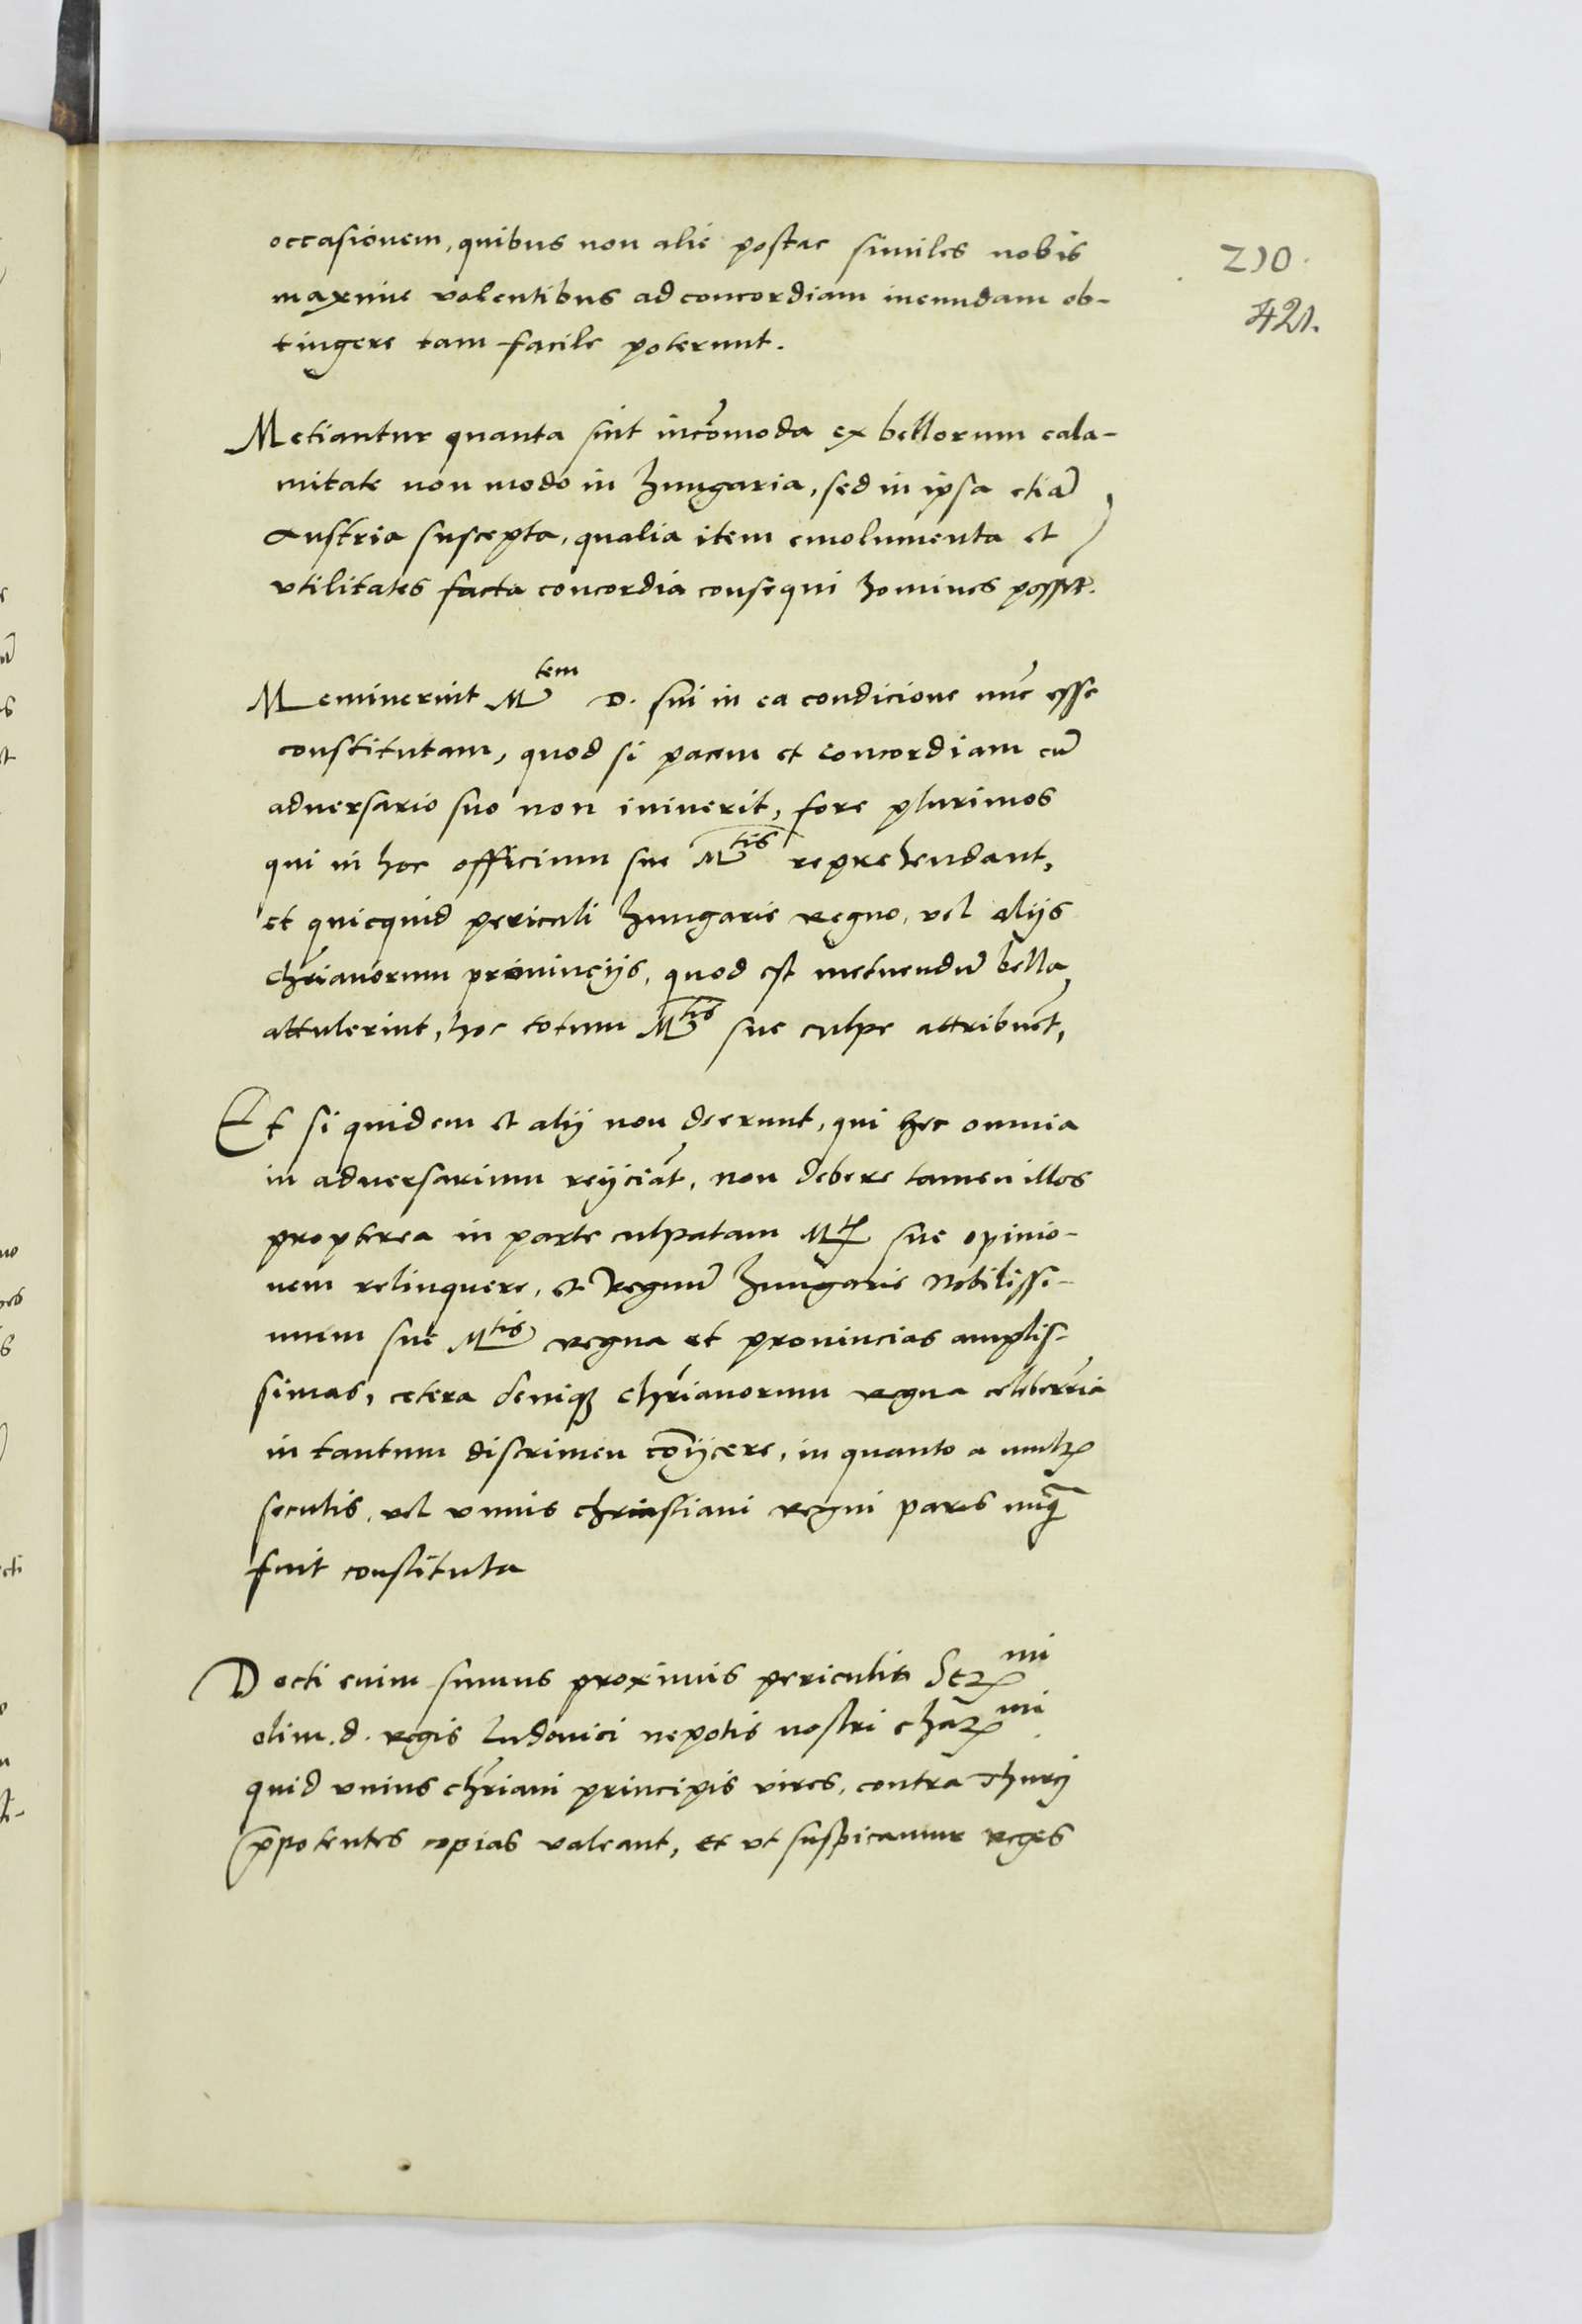 occasionem, quibus non alie postac similes nobis
maxime volentibus ad concordiam ineundam ob-
tingere tam facile poterunt.
210.
421.
Metiantur quanta sint incõmoda ex bellorum cala-
mitate non modo in hungaria, sed in ipsa etiã
Austria suscepta, qualia item emolumenta et
vtilitates facta concordia consequi homines possint.
Meminerint Mtem D. sui in ea condicione nũc esse
constitutam, quod si pacem et concordiam cũ
aduersario suo non iniuerit, fore plurimos
qui in hoc officium sue Mtis reprehendant,
et quicquid periculi hungarie regno, vel alijs
chrianorum prouincijs, quod est metuendũ bella
attulerint, hoc totum Mtis sue culpe attribuẽt,
Et si quidem et alij non deerunt, qui hec omnia
in aduersarium reijciãt, non debere tamen illos
propterea in parte culpatam Mtis sue opinio-
nem relinquere, et Regnũ hungarie Nobilissi-
mum sue Mtis regna et prouincias amplis-
simas, cetera deniqꝫ chrianorum regna celeberria
in tantum discrimen cõijcere, in quanto a multis
seculis, vel vnius christiani regni pars nũqꝫ
fuit constituta
Docti enim sumus proximis periculis Sermi
olim. d. regis Ludouici nepotis nostri charmi.
quid vnius chriani principis vires, contra thurcj
p̃potentes copias valeant, et vt suspicamur reges